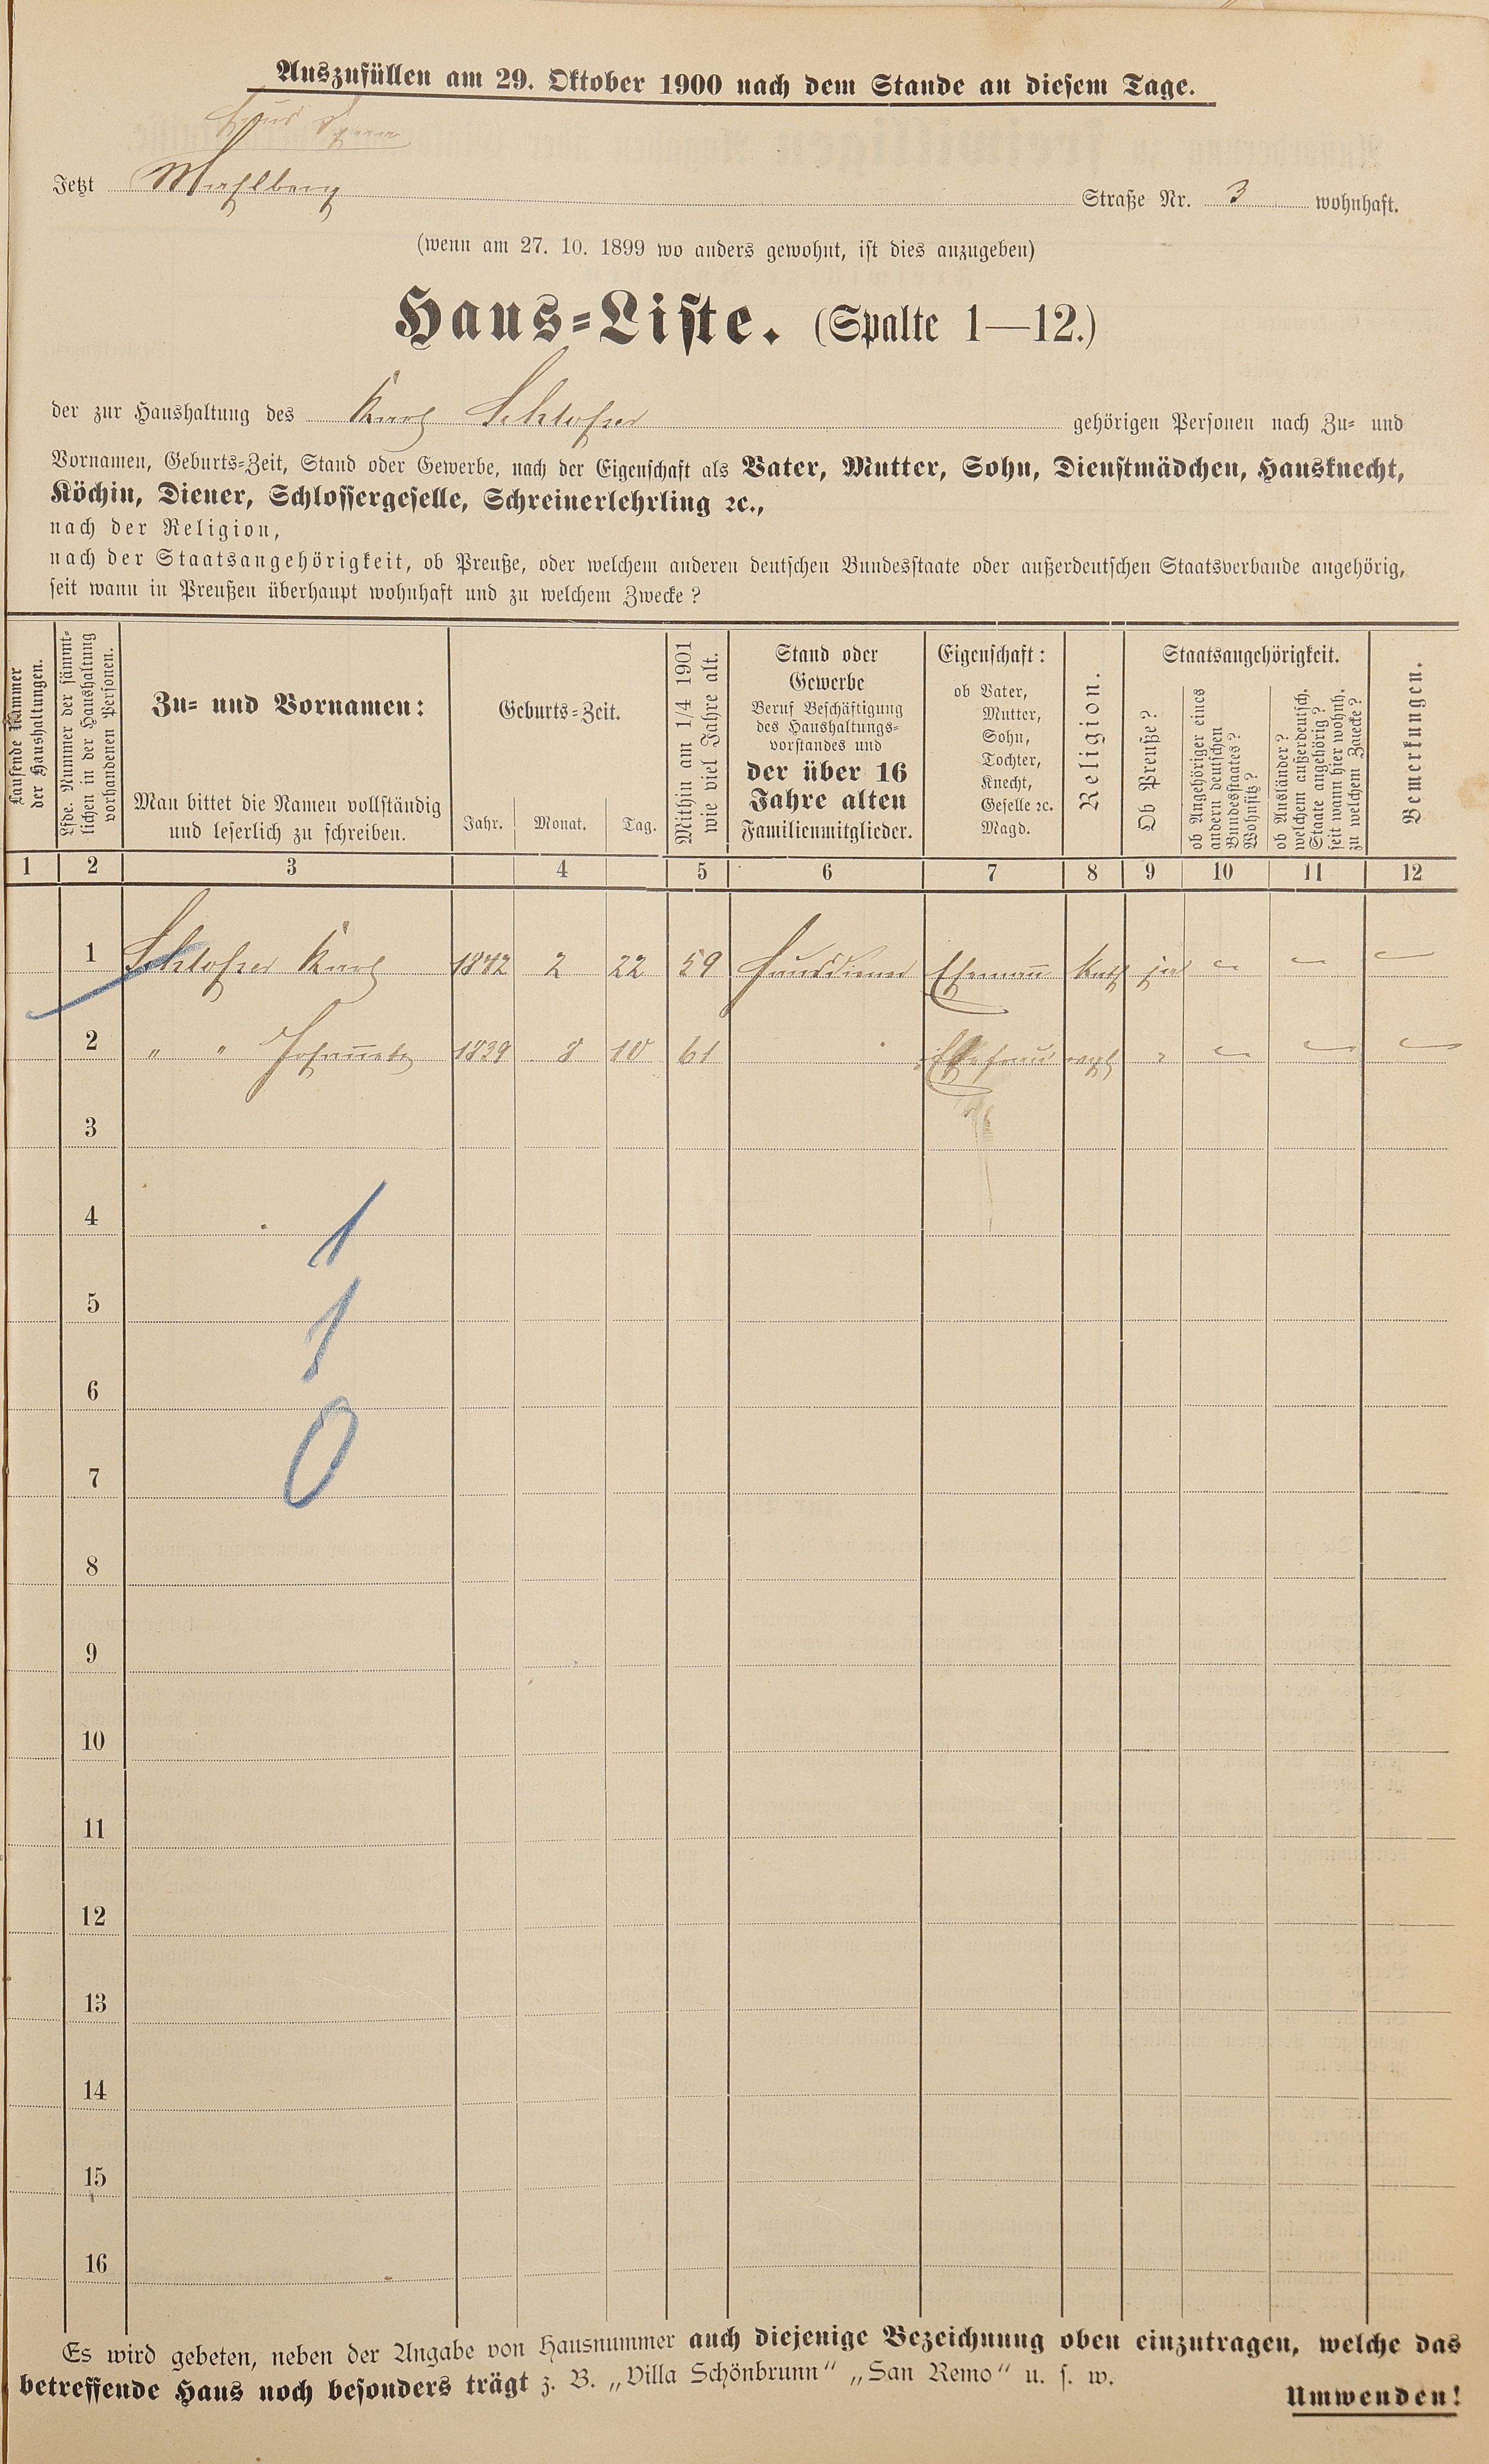 Auszufüllen am 29. Oktober 1900 nach dem Stande an diesem Tage.
Haus
Jetzt Mahlberg Straße Nr. 3 wohnhaft.
(wenn am 27. 10. 1899 wo anders gewohnt, ist dies anzugeben)
Haus=Liste. (Spalte 1—12.)
der zur Haushaltung des Karl Schlosser gehörigen Personen nach Zu= und
Vornamen, Geburts=Zeit, Stand oder Gewerbe, nach der Eigenschaft als Vater, Mutter, Sohn, Dienstmädchen, Hausknecht,
Köchin, Diener, Schlossergeselle, Schreinerlehrling ꝛc.,
nach der Religion,
nach der Staatsangehörigkeit, ob Preuße, oder welchem anderen deutschen Bundesstaate oder außerdeutschen Staatsverbande angehörig,
seit wann in Preußen überhaupt wohnhaft und zu welchem Zwecke?
Laufende Nummer
der Haushaltungen.
Lfde. Nummer der sämmt=
lichen in der Haushaltung
vorhandenen Personen.
Zu= und Vornamen:
Man bittet die Namen vollständig
und leserlich zu schreiben.
Geburts=Zeit.
Jahr. Monat. Tag.
Mithin am 1/4 1901
wie viel Jahre alt.
Stand oder
Gewerbe
Beruf Beschäftigung
des Haushaltungs=
vorstandes und
der über 16
Jahre alten
Familienmitglieder.
Eigenschaft:
ob Vater,
Mutter,
Sohn,
Tochter,
Knecht,
Geselle ꝛc.
Magd.
Religion.
Staatsangehörigkeit.
Ob Preuße?
ob Angehöriger eines
andern deutschen
Bundesstaates?
Wohnsitz?
ob Ausländer?
welchem außerdeutsch.
Staate angehörig?
seit wann hier wohnh.
zu welchem Zwecke?
Bemerkungen.
1 2 3 4 5 6 7 8 9 10 11 12
1 Schlosser Karl 1842 2 22 59 Hausdiener Ehemann Kath ja — — —
2 " " Johannette 1839 8 10 61 Ehefrau evgl " — — —
3
4
1
5
1
6
0
7
8
9
10
11
12
13
14
15
16
Es wird gebeten, neben der Angabe von Hausnummer auch diejenige Bezeichnung oben einzutragen, welche das
betreffende Haus noch besonders trägt z. B. „Villa Schönbrunn“ „San Remo“ u. s. w.
Umwenden!